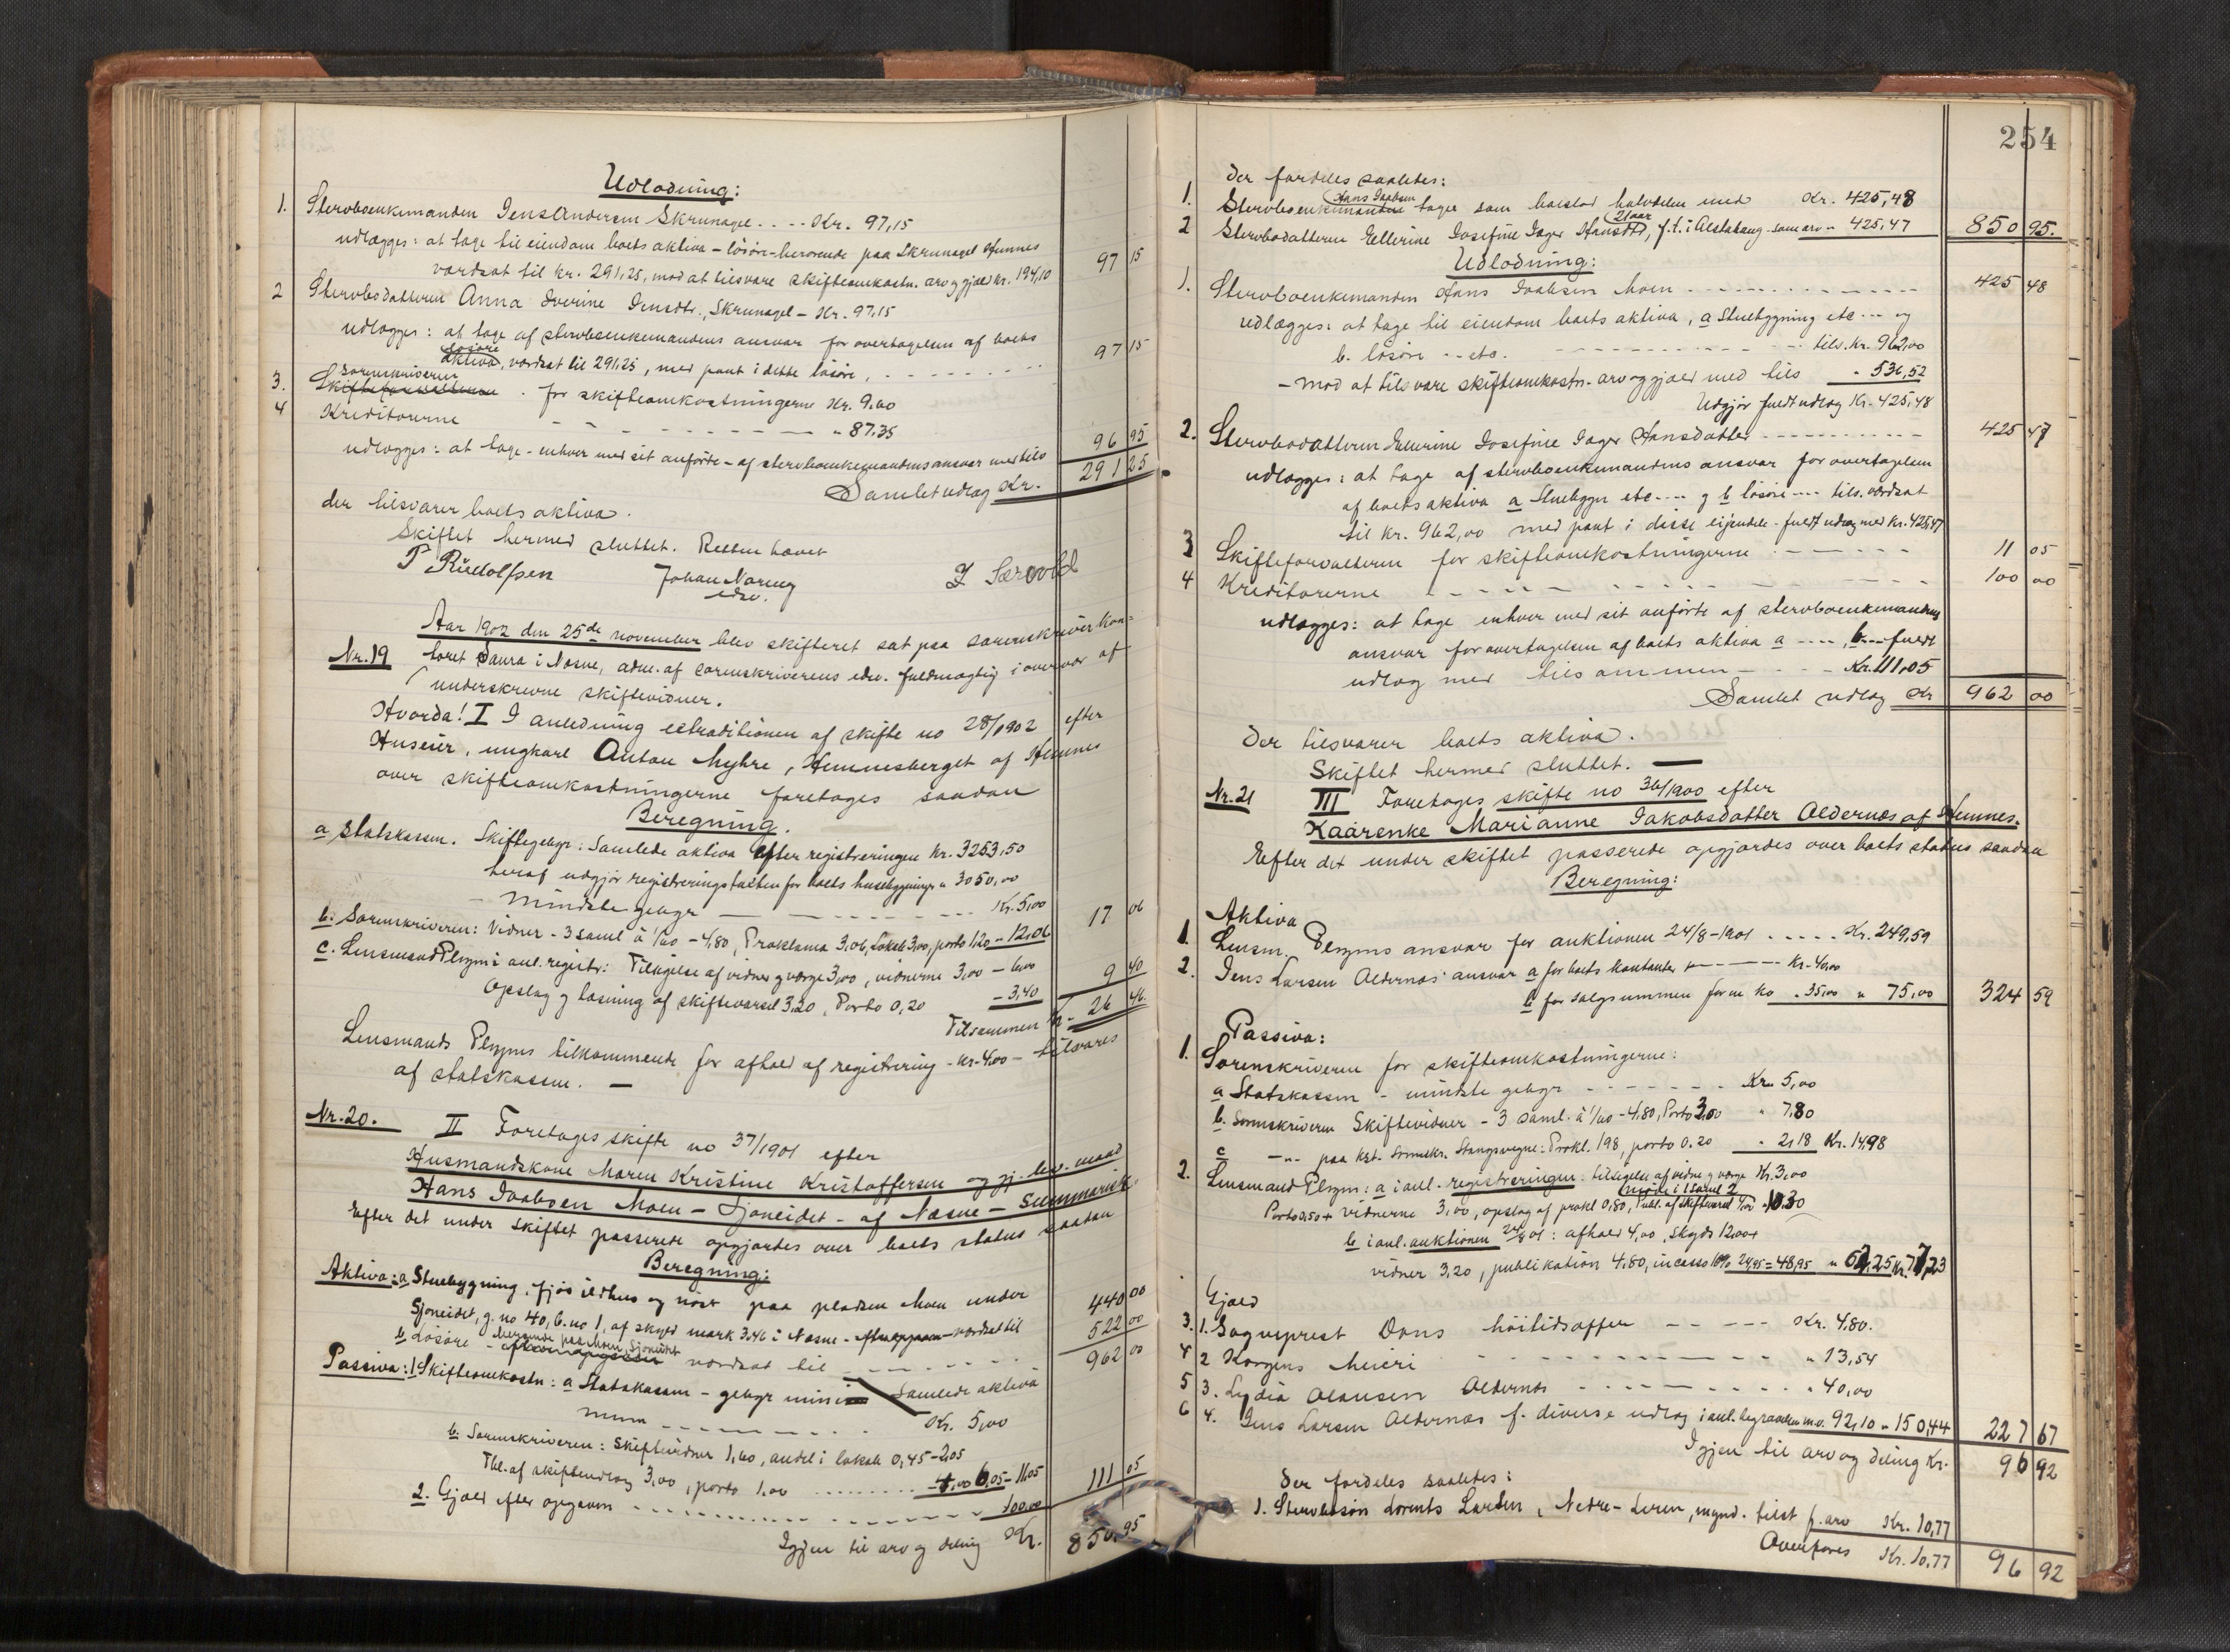 Udlodning:
1. Stervboenkemanden Jens Andersen Skrunagel .. - - Kr. 97,15
udlægges: at tage til eiendom boets aktiva - løsøre - beroende paa Skrunagel Hemnes
værdsat til kr. 291,25, mod at tilsvare skifteomkostn. arv og gjæld kr. 194,10 97 15
2 Stervbodatteren Anna Iverine Jensdtr., Skrunagel - Kr. 97,15
udlægges: at tage af stervboenkemandens ansvar for overtagelsen af boets
løsøre aktiva, værdsat til 291,25, med pant i dette løsøre, - - - - - 97 15
3. Sorenskriveren Skifteforvalteren . for skifteomkostningerne Kr. 9.60
4 Kreditorerne - - - - - - - - - „ 87.35
udlægges: at tage - enhver med sit anførte - af stervboenkemandens ansvar med tils 96 95
Samlet udlæg Kr. 291 25
der tilsvarer boets aktiva.
Skiftet hermed sluttet. Retten hævet
P Rudolfsen Johan Narmy I Særvold
edsv.
Aar 1902 den 25de november blev skifteret sat paa sorenskriverkon=
Nr. 19 toret Saura i Næsne, adm. af sorenskriverens edsv. fuldmægtig i overvær af
underskrevne skiftevidner.
Hvorda! I I anledning extraditionen af skifte no 28/1902 efter
Huseier, ungkarl Anton Myhre, Hemnesberget af Hemnes
over skifteomkostningerne foretages saadan
Beregning.
a Statskassen. Skiftegebyr: Samlede aktiva efter registreringen Kr. 3253.50
heraf udgjør registreringstaksten for boets husebygninger „ 3050,00
- Mindste gebyr - - - - - - Kr. 5,00
b. Sorenskriveren: Vidner - 3 saml à 1/60 - 4,80, Proklama 3,06, Lokale 3,00, porto 1,20 - 12,06 17 06
c. Lensmand Plezym i anl. registr: Tilsigelse af vidner og værge 3,00, vidnerne 3,00 - 6,00
Opslag og læsning af skiftevarsel 3,20, Porto 0,20 - 3,40 9 40
Tilsammen kr - 26 46.
Lensmands Plezyms tilkommende for afhold af registrering - kr. 4,00 - tilsvares
af statskassen. -
Nr. 20. II Foretages skifte no 37/1901 efter
Husmandskone Maren Kristine Kristoffersen og gj. lev. mand
Hans Isaksen Moen - Sjoneidet - af Næsne - summarisk.
Efter det under skiftet passerede opgjordes over boets status saadan
Beregning:
Aktiva: a Stuebygning, fjøs ildhus og nøst paa pladsen Moen under
Sjoneidet, g. no 40, b. no 1, af skyld mark 3.46 i Næsne - værdsat til 440 00
b Løsøre - beroende paa Moen, Sjoneidet værdsat til - - - - - 522 00
Samlede aktiva 962 00
Passiva: 1 Skifteomkostn: a Statskassen - gebyr mini
mum - - - - - - Kr. 5,00
b. Sorenskriveren: Skiftevidner 1,60, andel i lokale 0,45 - 2,05
Tbl. af skifteudlæg 3,00, porto 1,00 ........ - 4,00 6,05 - 11,05
2. Gjæld efter opgaven - - - - - - - 100.00 111 05
Igjen til arv og deling Kr. 850,95
254
der fordeles saaledes:
1. Stervboenkemanden Hans Isaksen tager som boeslod halvdelen med Kr. 425,48
2 Stervbodatteren Ellerine Josefine Jager Hansdtr, 21 aar f.t. i Alstahaug som arv „ 425,47 850 95.
Udlodning:
1. Stervboenkemanden Hans Isaksen Moen - - - - - - 425 48
udlægges: at tage til eiendom boets aktiva, a Stuebygning etc ... og
b. løsøre ... etc. - - - - - tils. kr. 962,00
- mod at tilsvare skifteomkostn. arv og gjæld med tils „ 536,52
Udgjør fuldt udlæg Kr. 425,48
2. Stervbodatteren Ellerine Josefine Jager Hansdatter - - - - - 425 47
udlægges: at tage af stervboenkemandens ansvar for overtagelsen
af boets aktiva a Stuebygn etc .... og b løsøre .... tils. værdsat
til kr. 962,00 med pant i disse eiendele - fuldt udlæg med Kr. 425,47
3 Skifteforvalteren for skifteomkostningerne - - - - - 11 05
4 Kreditorerne - - - - - - - - - 100 00
udlægges: at tage enhver med sit anførte af stervboenkemandens
ansvar for overtagelsen af boets aktiva a ...., b.... fuldt
udlæg med tilsammen - - - - Kr. 111,05
Samlet udlæg Kr 962 00
der tilsvarer boets aktiva.
Skiftet hermed sluttet. -
Nr. 21 III Foretages skifte no 36/1900 efter
Kaarenke Marianne Jakobsdatter Aldernæs af Hemnes.
Efter det under skiftet passerede opgjordes over boets status saadan
Beregning:
Aktiva
1. Lensm. Plezyms ansvar for auktionen 24/8-1901 ..... Kr. 249,59
2. Jens Larsen Aldernæs' ansvar a for boets kontanter - - - Kr. 40,00
b for salgsummen for en ko „ 35,00 „ 75,00 324 59
Passiva:
1. Sorenskriveren for skifteomkostningerne:
a Statskassen - mindste gebyr - - - - - Kr. 5,00
b. Sorenskriveren Skiftevidner - 3 saml. à 1/60 - 4,80, Porto 3,00 „ 7,80
c -„- paa kst. Sorenskr. Stangsvegne: Prokl. 1,98, porto 0.20 „ 2,18 Kr. 14,98
2. Lensmand Plezym: a i anl. registreringen: tilsigelse af vidne og værge Kr. 3,00
møde i 1 saml 2
Porto 0,50 + vidnerne 3,00, opslag af prokl 0,80, Publ. af skiftevarsel 1,00 - 10.30
b i anl. auktionen 24/8 01: afhold 4,00, skyds 12.00+
vidner 3.20, publikation 4,80, incasso 10% 24,95 = 48,95 „ 62,25 Kr. 77,23
Gjæld
3. 1. Sogneprest Dons høitidsoffer - - - - Kr. 4.80.
4 2 Korgens Meieri - - - - - - - - „ 13,54
5 3. Lydia Olausen Aldernæs - - - - - - „ 40,00
6 4. Jens Larsen Aldernæs f. diverse udlæg i anl. begravelsen m.v. 92,10 „ 150,44 227 67
Igjen til arv og deling Kr. 96 92
der fordeles saaledes:
1. Stervbosøn Lorents Larsen, Nedre-Leren, mynd. tilst f. arv Kr. 10,77
Overføres Kr. 10,77 96 92